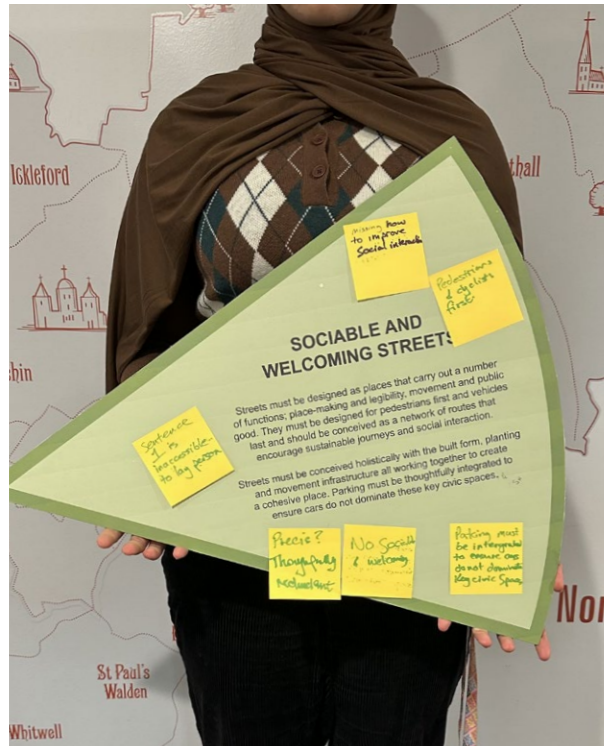 Ickleford
St Paul's
Walden
Whitwell
missing how
to improve
Social interaction
Pedestrians
& cyclists
first
SOCIABLE AND
WELCOMING STREETS
Streets must be designed as places that carry out a number
of functions; place-making and legibility, movement and public
good. They must be designed for pedestrians first and vehicles
last and should be conceived as a network of routes that
encourage sustainable journeys and social interaction.
Streets must be conceived holistically with the built form, planting
and movement infrastructure all working together to create
a cohesive place. Parking must be thoughtfully integrated to
ensure cars do not dominate these key civic spaces.
Sentence
1 is
inaccessible
to lay person
Precis?
Thoughtfully
redundant
No Social
& welcoming
Parking must
be intergrated
to ensure cars
do not dominate
Key civic Spaces
thall
hin
Nor